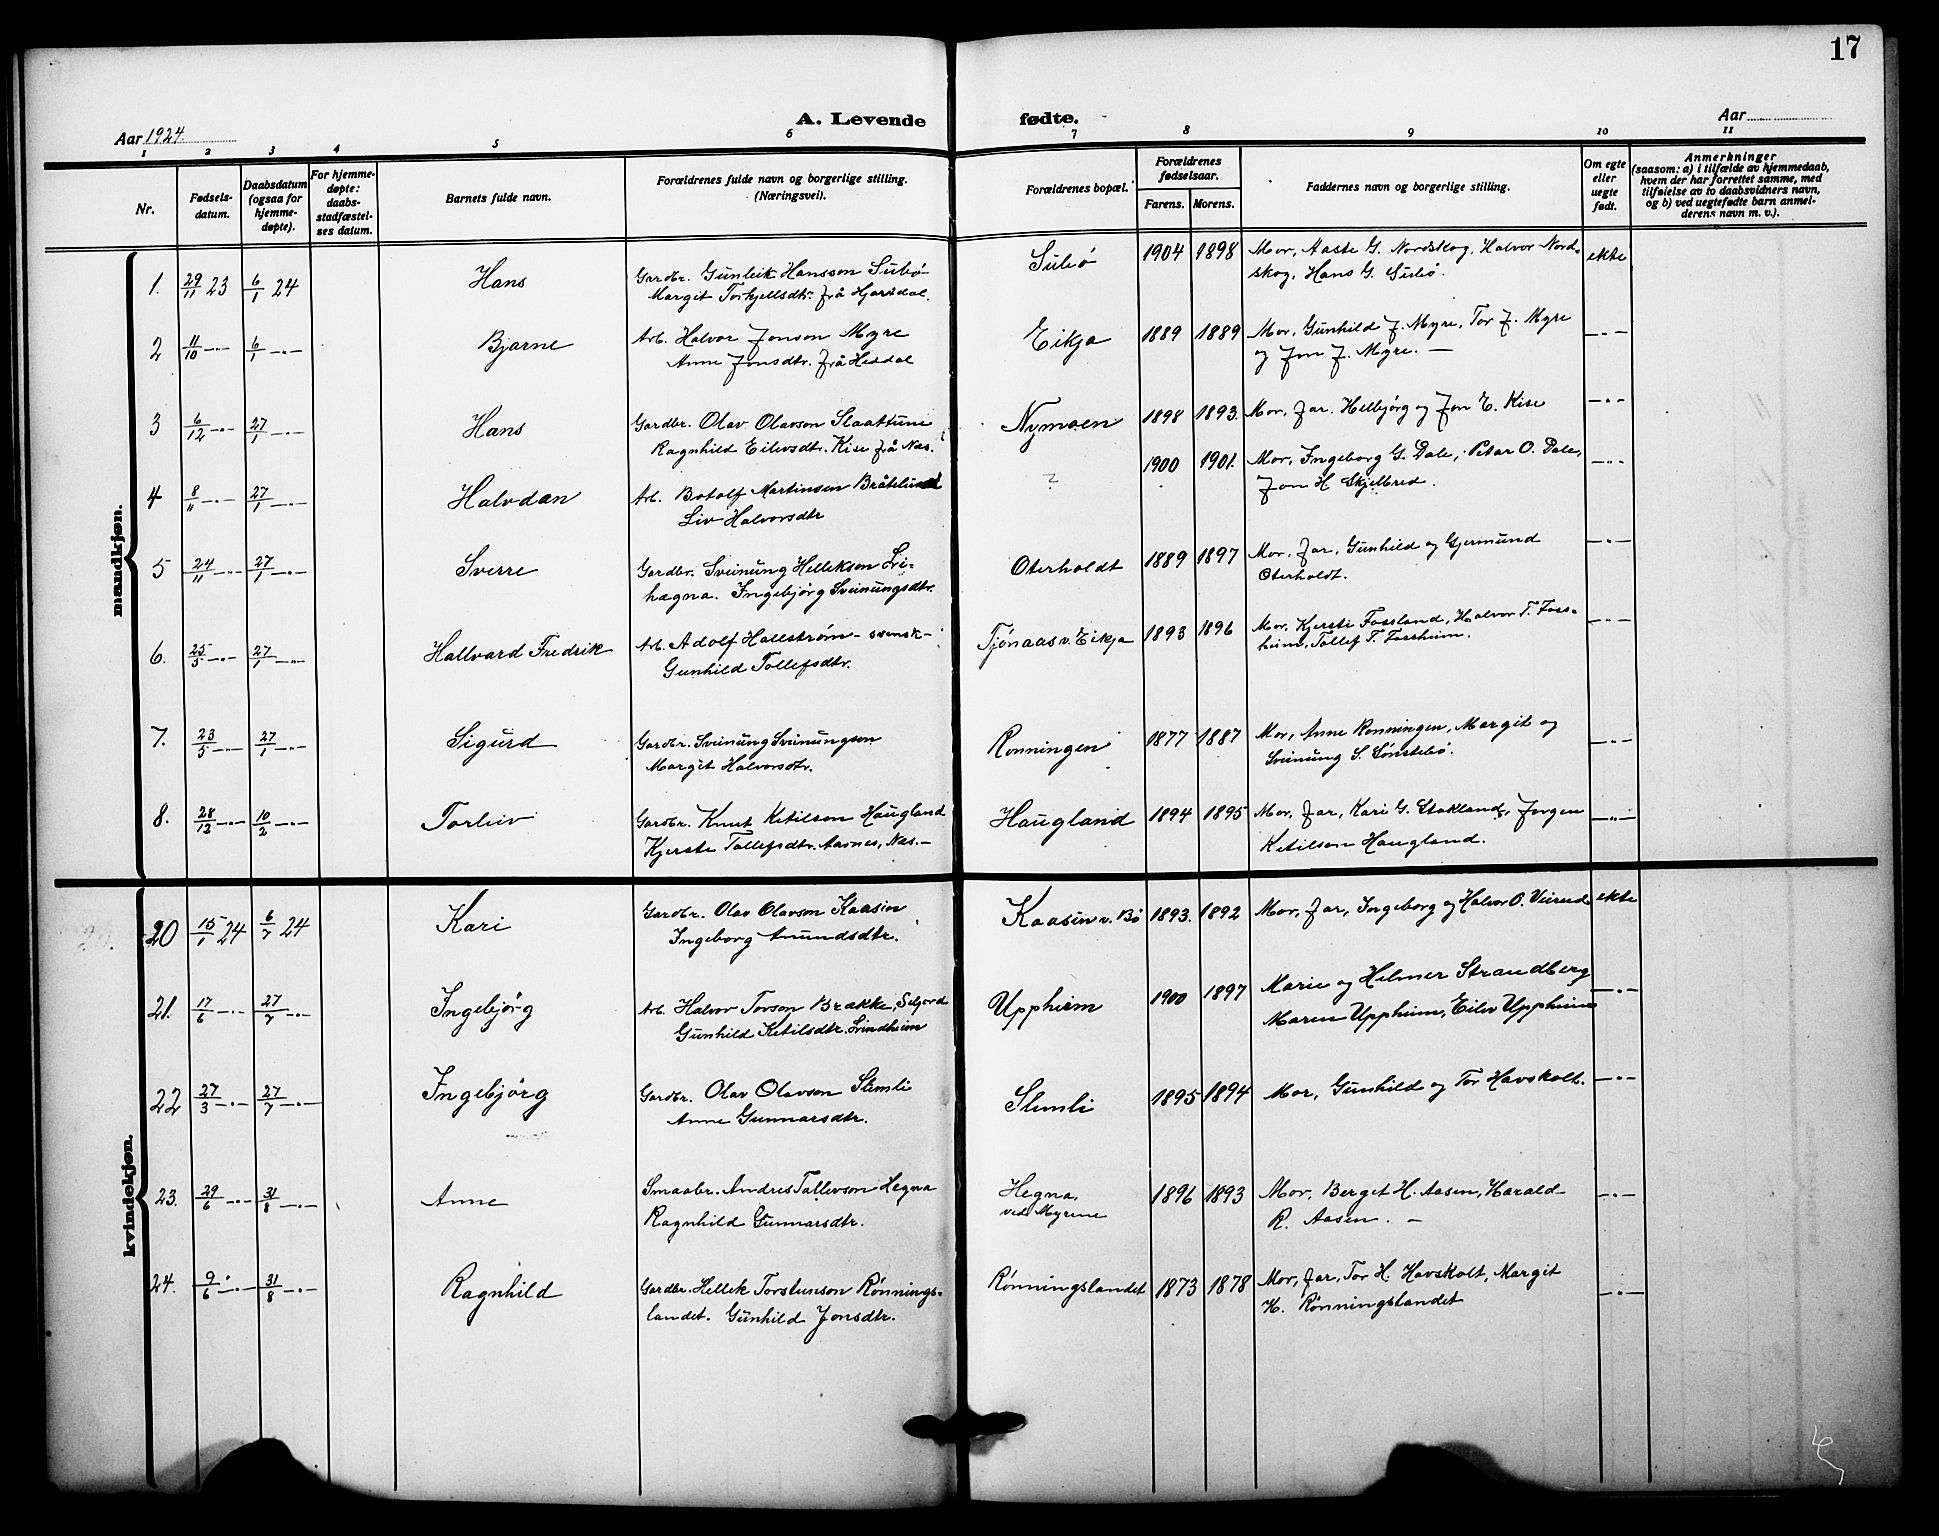 17
A. Levende fødte.
Aar 1924.
Aar
1 2 3 4 5 6 7 8 9 10 11
Nr.
Fødsels-
datum.
Daabsdatum
(ogsaa for
hjemme-
døpte).
For hjemme-
døpte:
daabs-
stadfæstel-
ses datum.
Barnets fulde navn.
Forældrenes fulde navn og borgerlige stilling.
(Næringsvei).
Forældrenes bopæl.
Forældrenes
fødselsaar.
Farens. Morens.
Faddernes navn og borgerlige stilling.
Om egte
eller
uegte
født.
Anmerkninger
(saasom: a) i tilfælde av hjemmedaab,
hvem der har forrettet samme, med
tilføielse av to daabsvidners navn,
og b) ved uegtefødte barn anmel-
derens navn m. v.).
mandkjøn.
1. 29/11 23 6/1 24 Hans Gardbr. Gunleik Hansson Sulebø
Margit Torkjellsdtr. frå Hjartdal.
Sulebø 1904 1898 Mor, Aaste G. Nordskog, Halvor Nord-
skog, Hans G. Sulebø. ekte
2 11/10 -"- 6/1 -"- Bjarne Arb. Halvor Jonson Myre
Anne Jonsdtr. frå Heddal
Eikja 1889 1889 Mor, Gunhild J. Myre, Tor J. Myre
og Jon J. Myre. — -"-
3 6/12 -"- 27/1 -"- Hans Gardbr. Olav Olavson Slaattune
Ragnhild Eilevsdtr. Kise frå Næs.
Nymoen 1898 1893. Mor, Far, Hellbjørg og Jon E. Kise -"-
4 8/11 -"- 27/1 -"- Halvdan Arb. Botolf Martinsen Bråtelund
Liv Halvorsdtr
? 1900 1901. Mor, Ingeborg G. Dale, Petar O. Dale,
Jon H. Skjelbred. -"-
5 24/11 -"- 27/1 -"- Sverre Gardbr. Sveinung Hellekson Li-
hægna. Ingebjørg Sveinungsdtr.
Oterholdt 1889 1897 Mor, Far, Gunhild og Gjermund
Oterholdt. -"-
6. 25/5 -"- 27/1 -"- Hallvard Fredrik Arb. Adolf Hallstrøm - svensk -
Gunhild Tollefsdtr.
Tjønaas v. Eikja 1893 1896 Mor, Kjersti Fossland, Halvor T. Foss-
heim, Tollef T. Fossheim. -"-
7. 23/5 -"- 27/1 -"- Sigurd Gardbr. Sveinung Sveinungson
Margit Halvorsdtr.
Rønningen 1877 1887 Mor, Anne Rønningen, Margit og
Sveinung S. Sønstebø. -"-
8. 28/12 -"- 10/2 -"- Torleiv Gardbr. Knut Ketilson Haugland
Kjerste Tollefsdtr. Aarnes, Næs. —
Haugland 1894 1895 Mor, Far, Kari G. Stokland, Jørgen
Ketilson Haugland. -"-
kvindekjøn.
20 15/1 24 6/7 24 Kari Gardbr. Olav Olavson Kaasin
Ingeborg Amundsdtr.
Kaasin v. Bø 1893. 1892 Mor, Far, Ingeborg og Halvor O. Veirud ekte
21. 17/6 -"- 27/7 -"- Ingebjörg Arb. Halvor Tovson Brække, Seljord
Gunhild Ketilsdtr. Lindheim
Uppheim 1900 1897 Marie og Helmer Strandberg
Maren Uppheim, Eilev Uppheim -"-
22 27/3 -"- 27/7 -"- Ingebjörg Gardbr. Olav Olavson Slemli
Anne Gunnarsdtr.
Slemli 1895 1894 Mor, Gunhild og Tor Havskolt. -"-
23. 29/6 -"- 31/8 -"- Anne Smaabr. Andres Tallevson Hegna
Ragnhild Gunnarsdtr.
Hegna,
ved Myrene 1896 1893 Mor, Berget H. Aasen, Harald
R. Aasen. — -"-
24. 9/6 -"- 31/8 -"- Ragnhild Gardbr. Hellek Torsteinson Rønnings-
landet. Gunhild Jonsdtr.
Rønningslandet 1873 1878 Mor, Far, Tor H. Havskolt, Margit
H. Rønningslandet -"-